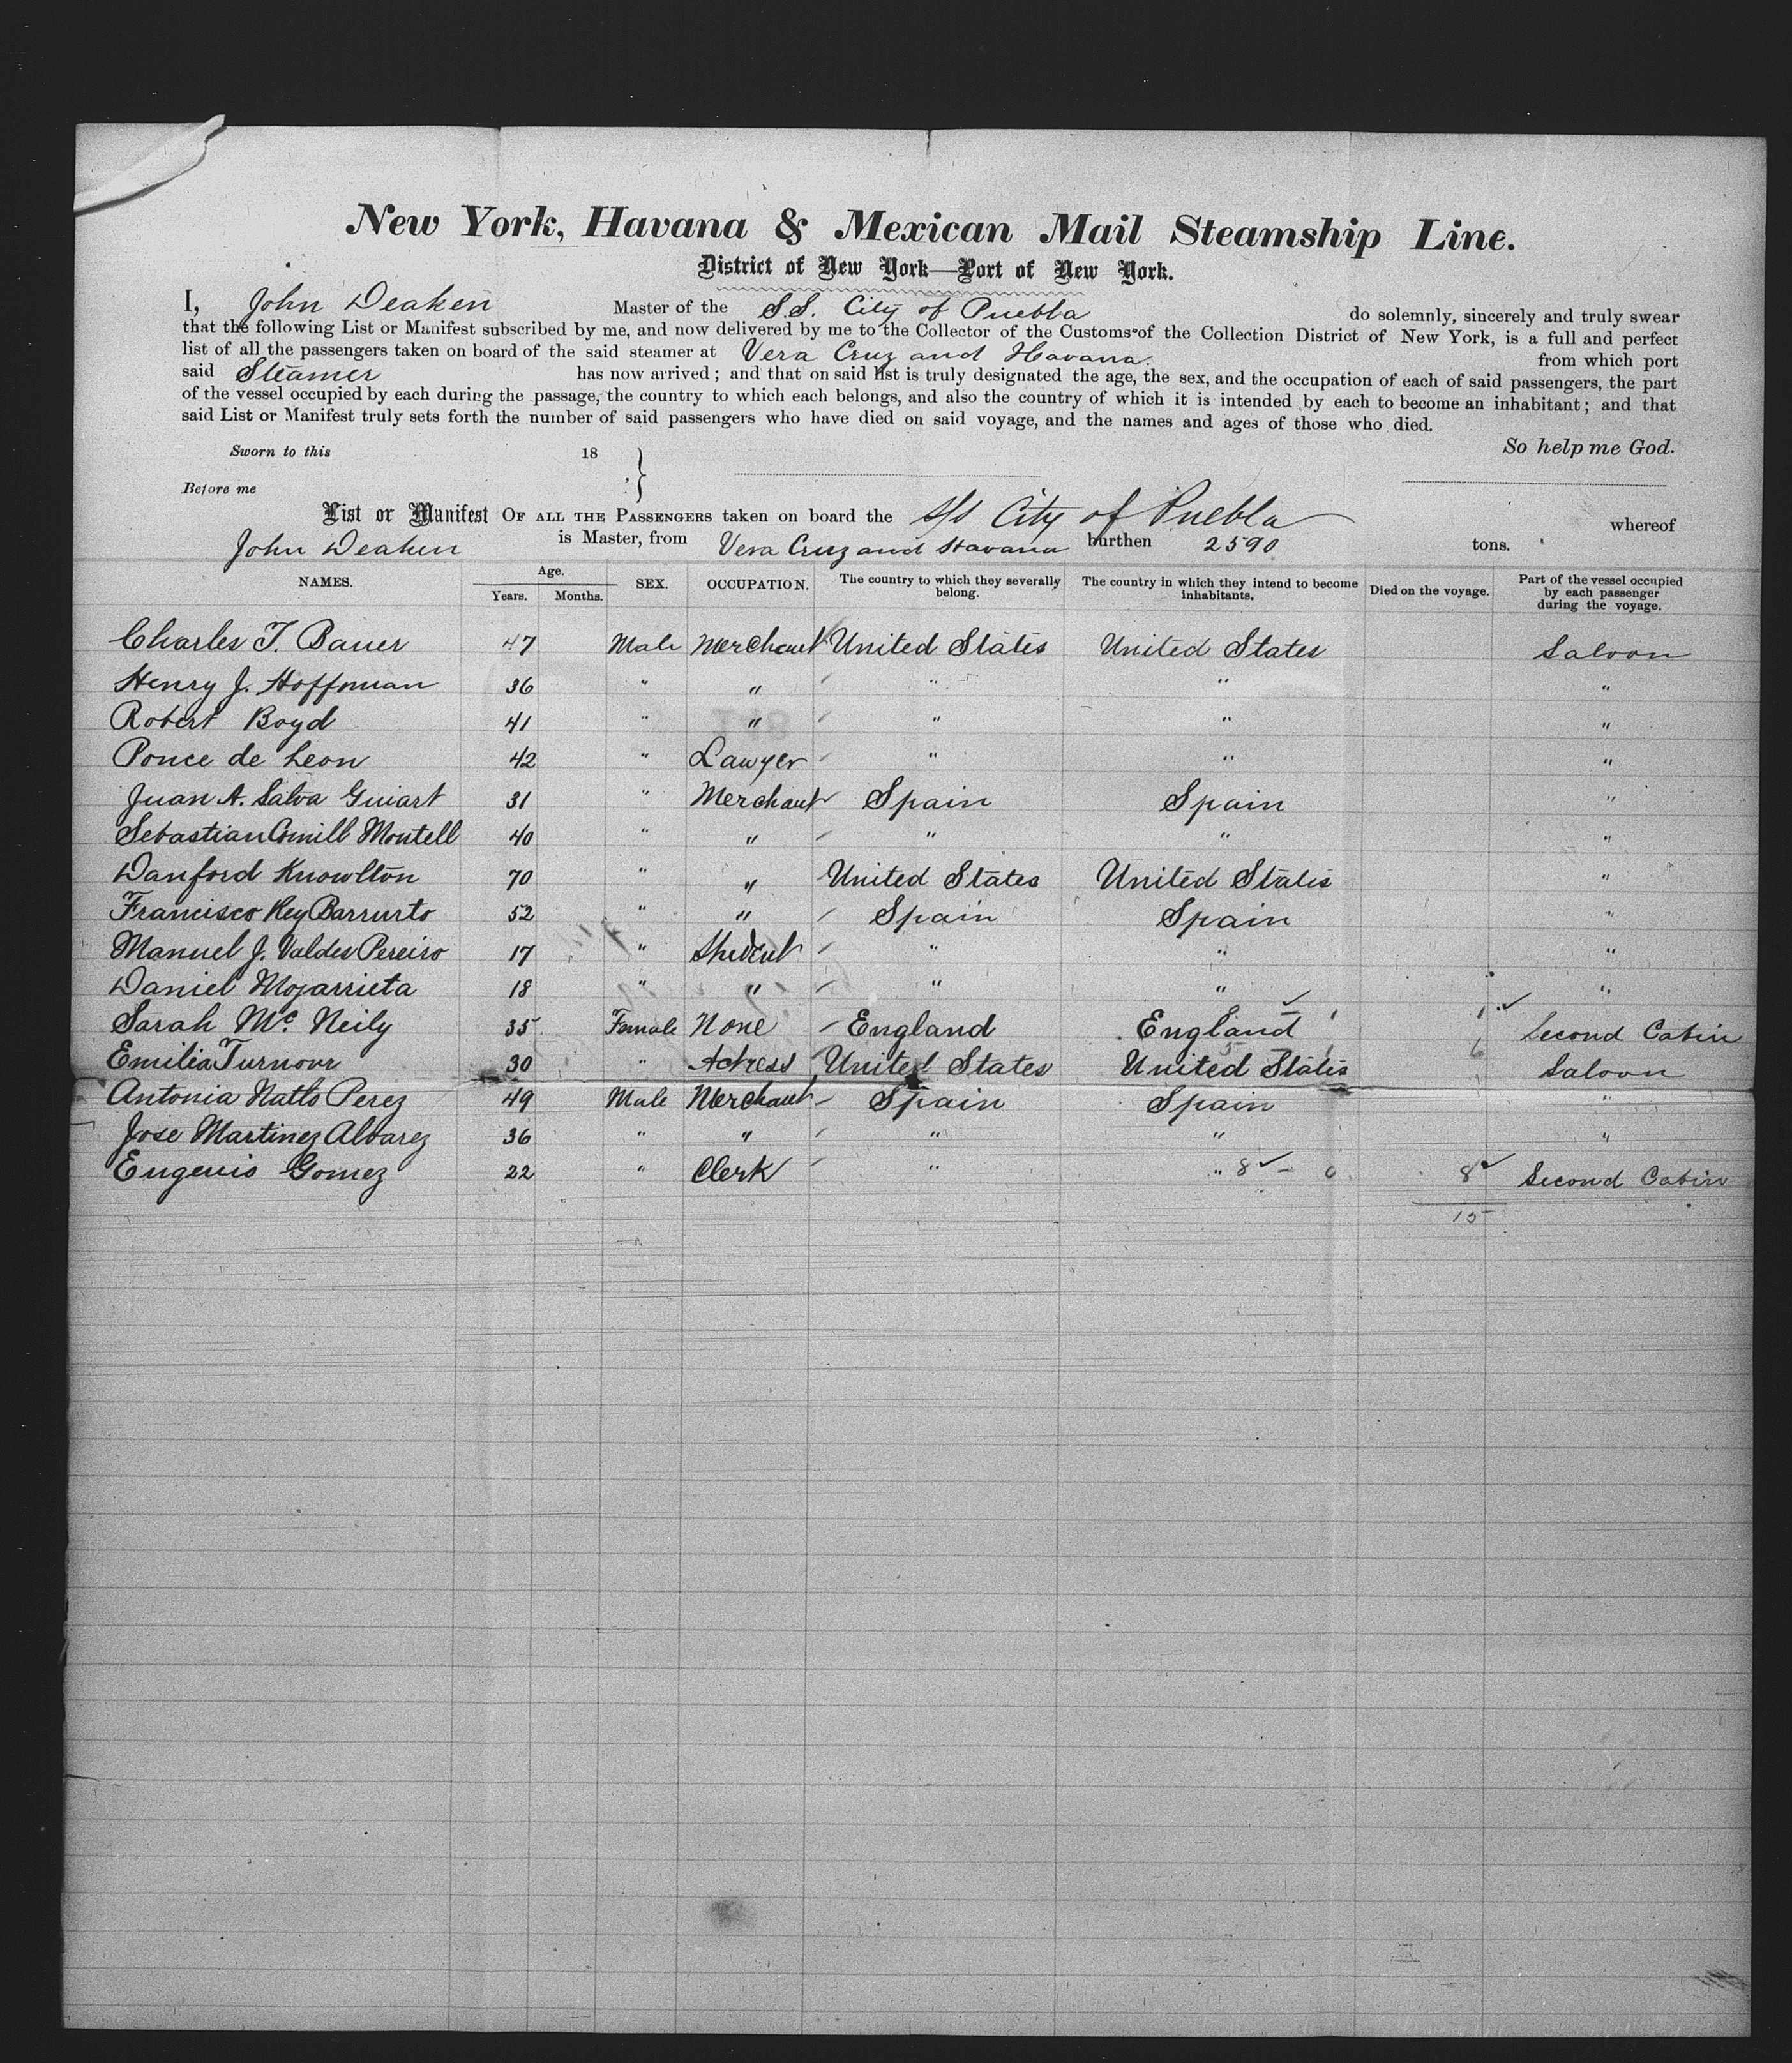 New York, Havana & Mexican Mail Steamship Line.
District of New York—Port of New York.
I, John Deaken Master of the S.S. City of Puebla do solemnly, sincerely and truly swear
that the following List or Manifest subscribed by me, and now delivered by me to the Collector of the Customs of the Collection District of New York, is a full and perfect
list of all the passengers taken on board of the said steamer at Vera Cruz and Havana. from which port
said Steamer has now arrived; and that on said list is truly designated the age, the sex, and the occupation of each of said passengers, the part
of the vessel occupied by each during the passage, the country to which each belongs, and also the country of which it is intended by each to become an inhabitant; and that
said List or Manifest truly sets forth the number of said passengers who have died on said voyage, and the names and ages of those who died.
Sworn to this 18 So help me God.
Before me
List or Manifest OF ALL THE PASSENGERS taken on board the S/S City of Puebla whereof
John Deaken is Master, from Vera Cruz and Havana burthen 2590 tons.
NAMES. Age. Years. Months. SEX. OCCUPATION. The country to which they severally belong. The country in which they intend to become inhabitants. Died on the voyage. Part of the vessel occupied by each passenger during the voyage.
Charles T. Bauer 47 Male Merchant United States United States Saloon
Henry J. Hoffman 36 " " " " "
Robert Boyd 41 " " " " "
Ponce de Leon 42 " Lawyer " " "
Juan A. Salva Guiart 31 " Merchant Spain Spain "
Sebastian Montell 40 " " " " "
Danford Knowlton 70 " " United States United States "
Francisco Rey Barrurto 52 " " Spain Spain "
Manuel J. Valdes Pereiro 17 " Student " " "
Daniel Mojarrieta 18 " " " " "
Sarah Mc. Neily 35 Female None England England 1 Second Cabin
Emilia Turnour 30 " Actress United States United States 6 Saloon
Antonia Natto Perez 49 Male Merchant Spain Spain "
Jose Martinez Alvarez 36 " " " " "
Eugenio Gomez 22 " Clerk " " 8 8 Second Cabin
15